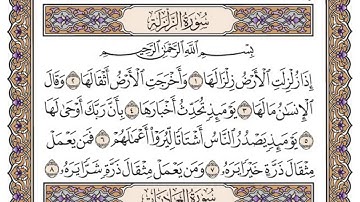 سُورَةُ الزَّلْزَلَةِ
بِسْمِ اللَّهِ الرَّحْمَٰنِ الرَّحِيمِ
إِذَا زُلْزِلَتِ الْأَرْضُ زِلْزَالَهَا ١ وَأَخْرَجَتِ الْأَرْضُ أَثْقَالَهَا ٢ وَقَالَ
الْإِنسَانُ مَا لَهَا ٣ يَوْمَئِذٍ تُحَدِّثُ أَخْبَارَهَا ٤ بِأَنَّ رَبَّكَ أَوْحَىٰ لَهَا
٥ يَوْمَئِذٍ يَصْدُرُ النَّاسُ أَشْتَاتًا لِّيُرَوْا أَعْمَالَهُمْ ٦ فَمَن يَعْمَلْ
مِثْقَالَ ذَرَّةٍ خَيْرًا يَرَهُ ٧ وَمَن يَعْمَلْ مِثْقَالَ ذَرَّةٍ شَرًّا يَرَهُ ٨
سُورَةُ الْعَادِيَاتِ